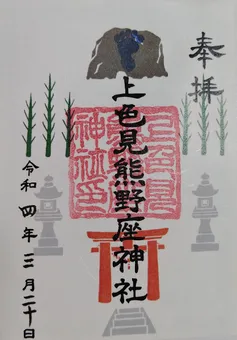 奉拝
上色見熊野座神社
令和四年三月二十日
上色見
神社印